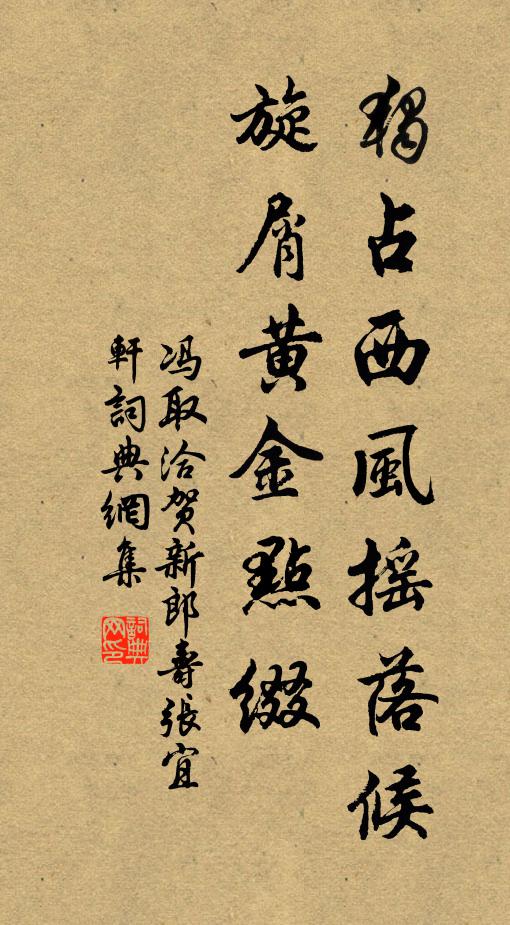 獨占西風摇落候
旋屑黄金點綴
冯取洽贺新郎壽張宜
軒詞典網集
詞典网印